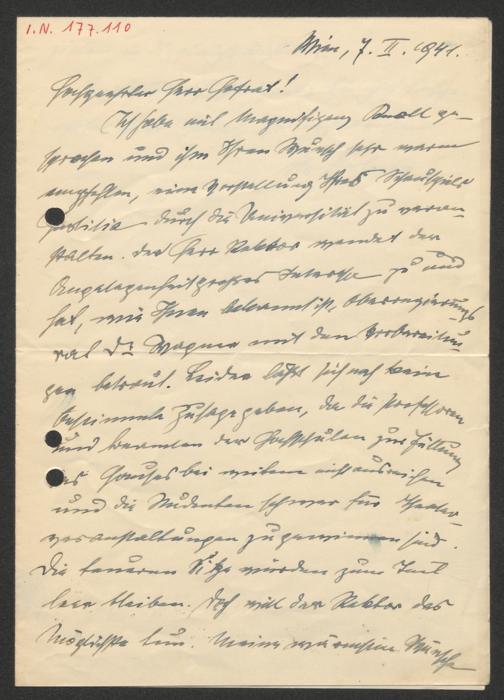 I.N. 177.110
Wien, 7. II. 1941.
Hochgeehrter Herr Hofrat!
Ich habe mit Magnifizenz Knoll ge-
sprochen und ihm Ihren Wunsch sehr warm
empfohlen, eine Vorstellung Ihres Schauspiels
durch die Universität zu veran-
stalten. Der Herr Rektor wendet der
Angelegenheit großes Interesse zu und
hat, wie Ihnen bekannt ist, Oberregierungs
rat Dr. Wagner mit den Vorbereitun-
gen betraut. Leider läßt sich noch keine
bestimmte Zusage geben, da die Professoren
und Beamten der Hochschulen zur Füllung
des Hauses bei weitem nicht ausreichen
und die Studenten schwer für Theater-
veranstaltungen zu gewinnen sind.
Die teureren Sitze würden zum Teil
leer bleiben. Doch will der Rektor das
Möglichste tun. Meine wärmsten Wünsche